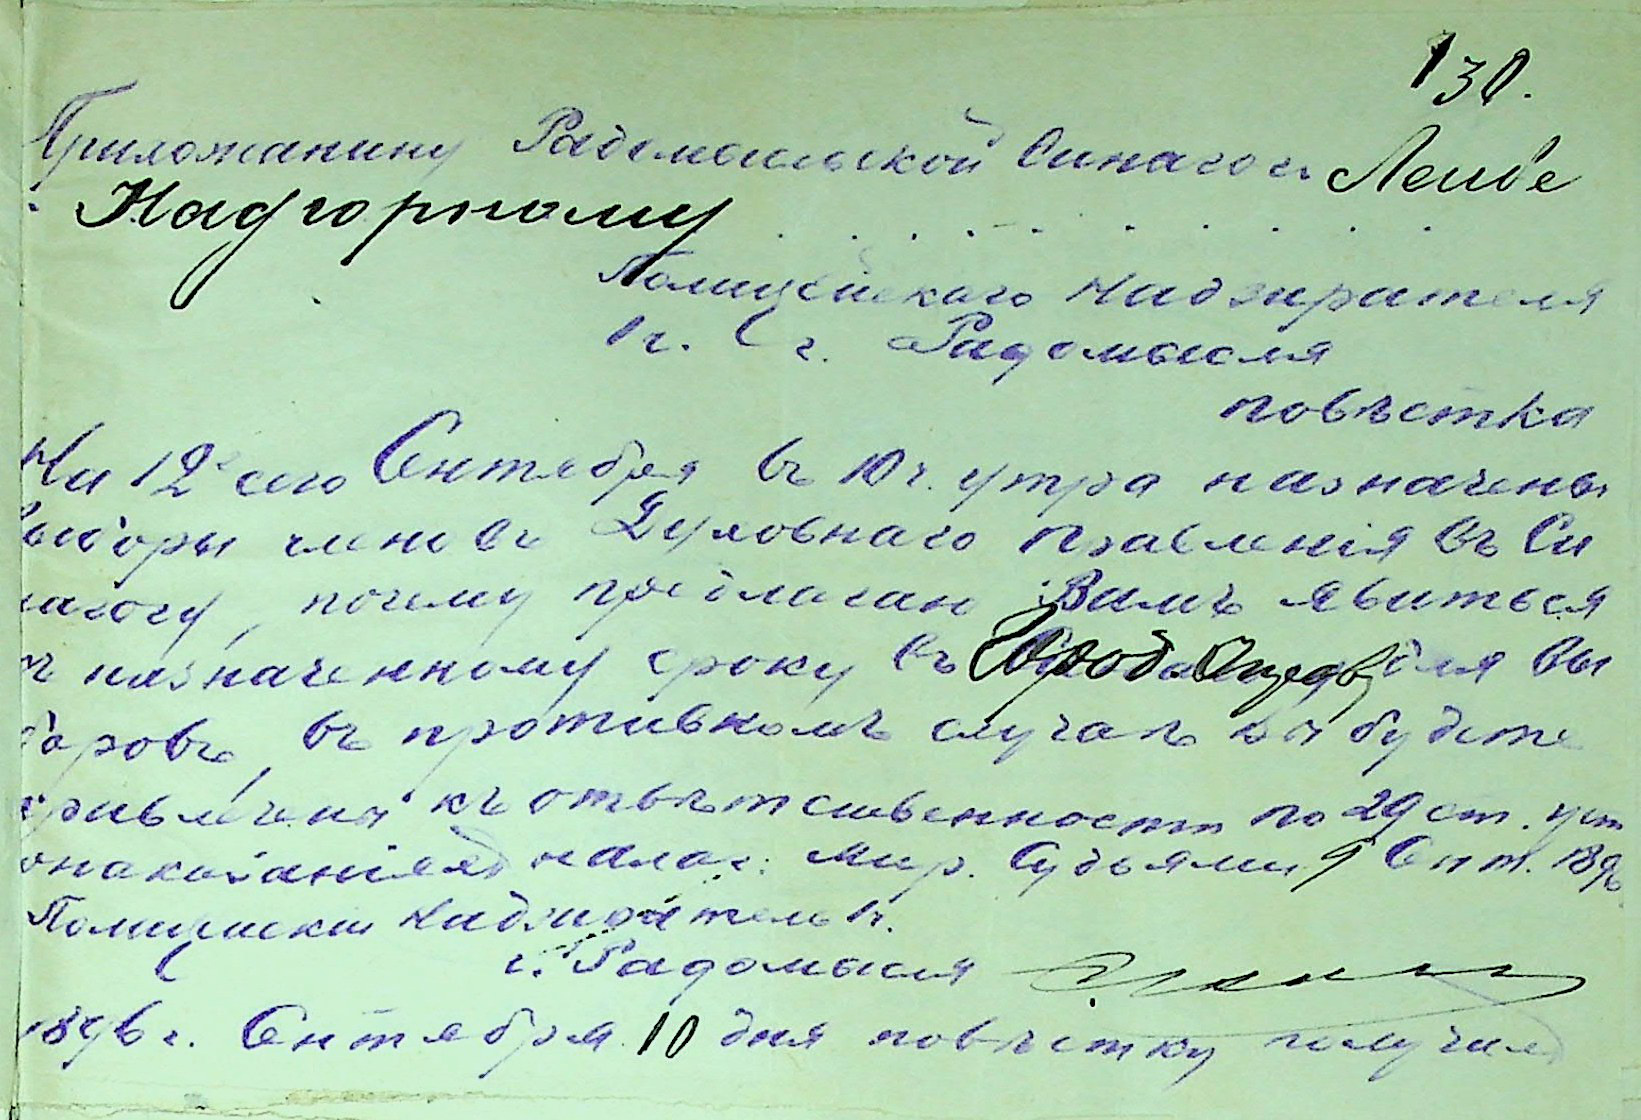 130.
Прихожанину Радомысльской Синагоги Лейбе
Надгорному
Полицейскаго Надзирателя
1 ч. г. Радомысля
повѣстка
На 12 сего Сентября въ 10 ч. утра назначены
выборы членовъ Духовнаго правленія въ Си
нагогу, почему предлагаю Вамъ явиться
къ назначенному сроку въ для вы
боровъ, въ противномъ случаѣ вы будете
привлечены къ отвѣтственности по 29 ст. уст
о наказаніяхъ налаг. Мир. Судьями 9 Сент. 1896
Полицейскій Надзиратель 1 ч.
г. Радомысля
1896 г. Сентября 10 дня повѣстку получилъ